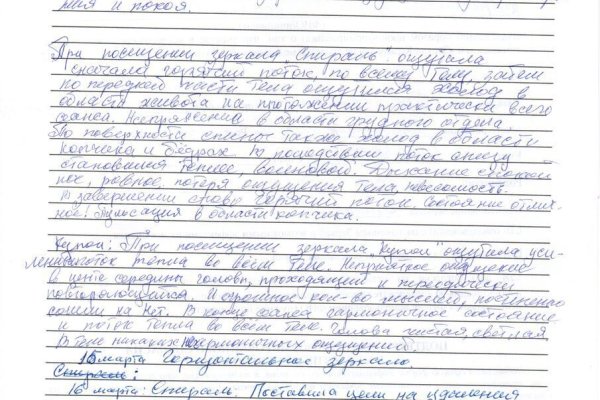 ния и покоя.
При посещении зеркала "Спираль" ощутила
сначала горячий поток, по всему телу, затем
по передней части тела ощущался холод в
области живота на протяжении практически всего
сеанса. Напряжение в области грудного отдела.
По поверхности спины также холод в области
копчика и бедрах. В последствии поток снизу
становился теплее, волновой. Дыхание спокой
ное, ровное, потеря ощущения тела, невесомость.
В завершении снова горячий поток. Состояние отлич-
ное. Пульсация в области копчика.
Купол: При посещении зеркала "Купол" ощутила уси-
ление поток тепла во всем теле. Неприятное ощущение
в центе середины головы, проходящий и переодически
повторяющийся. Огромное кол-во мыслей, постепенно
сошли на нет. В конце сеанса гармоничное состояние
и поток тепла во всем теле. Голова чистая, светлая,
в теле никаких не гармоничных ощущений.
15 марта Горизонтальное зеркало.
Спираль:
16 марта: Спираль. Поставила цели на удаления